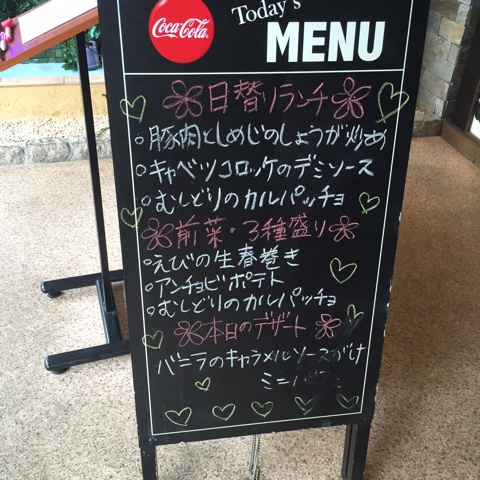 Coca-Cola
Today's
MENU
日替りランチ
○豚肉としめじのしょうが炒め
○キャベツコロッケのデミソース
○むしどりのカルパッチョ
前菜・3種盛り
○えびの生春巻き
○アンチョビポテト
○むしどりのカルパッチョ
本日のデザート
バニラのキャラメルソースがけ
ミニ